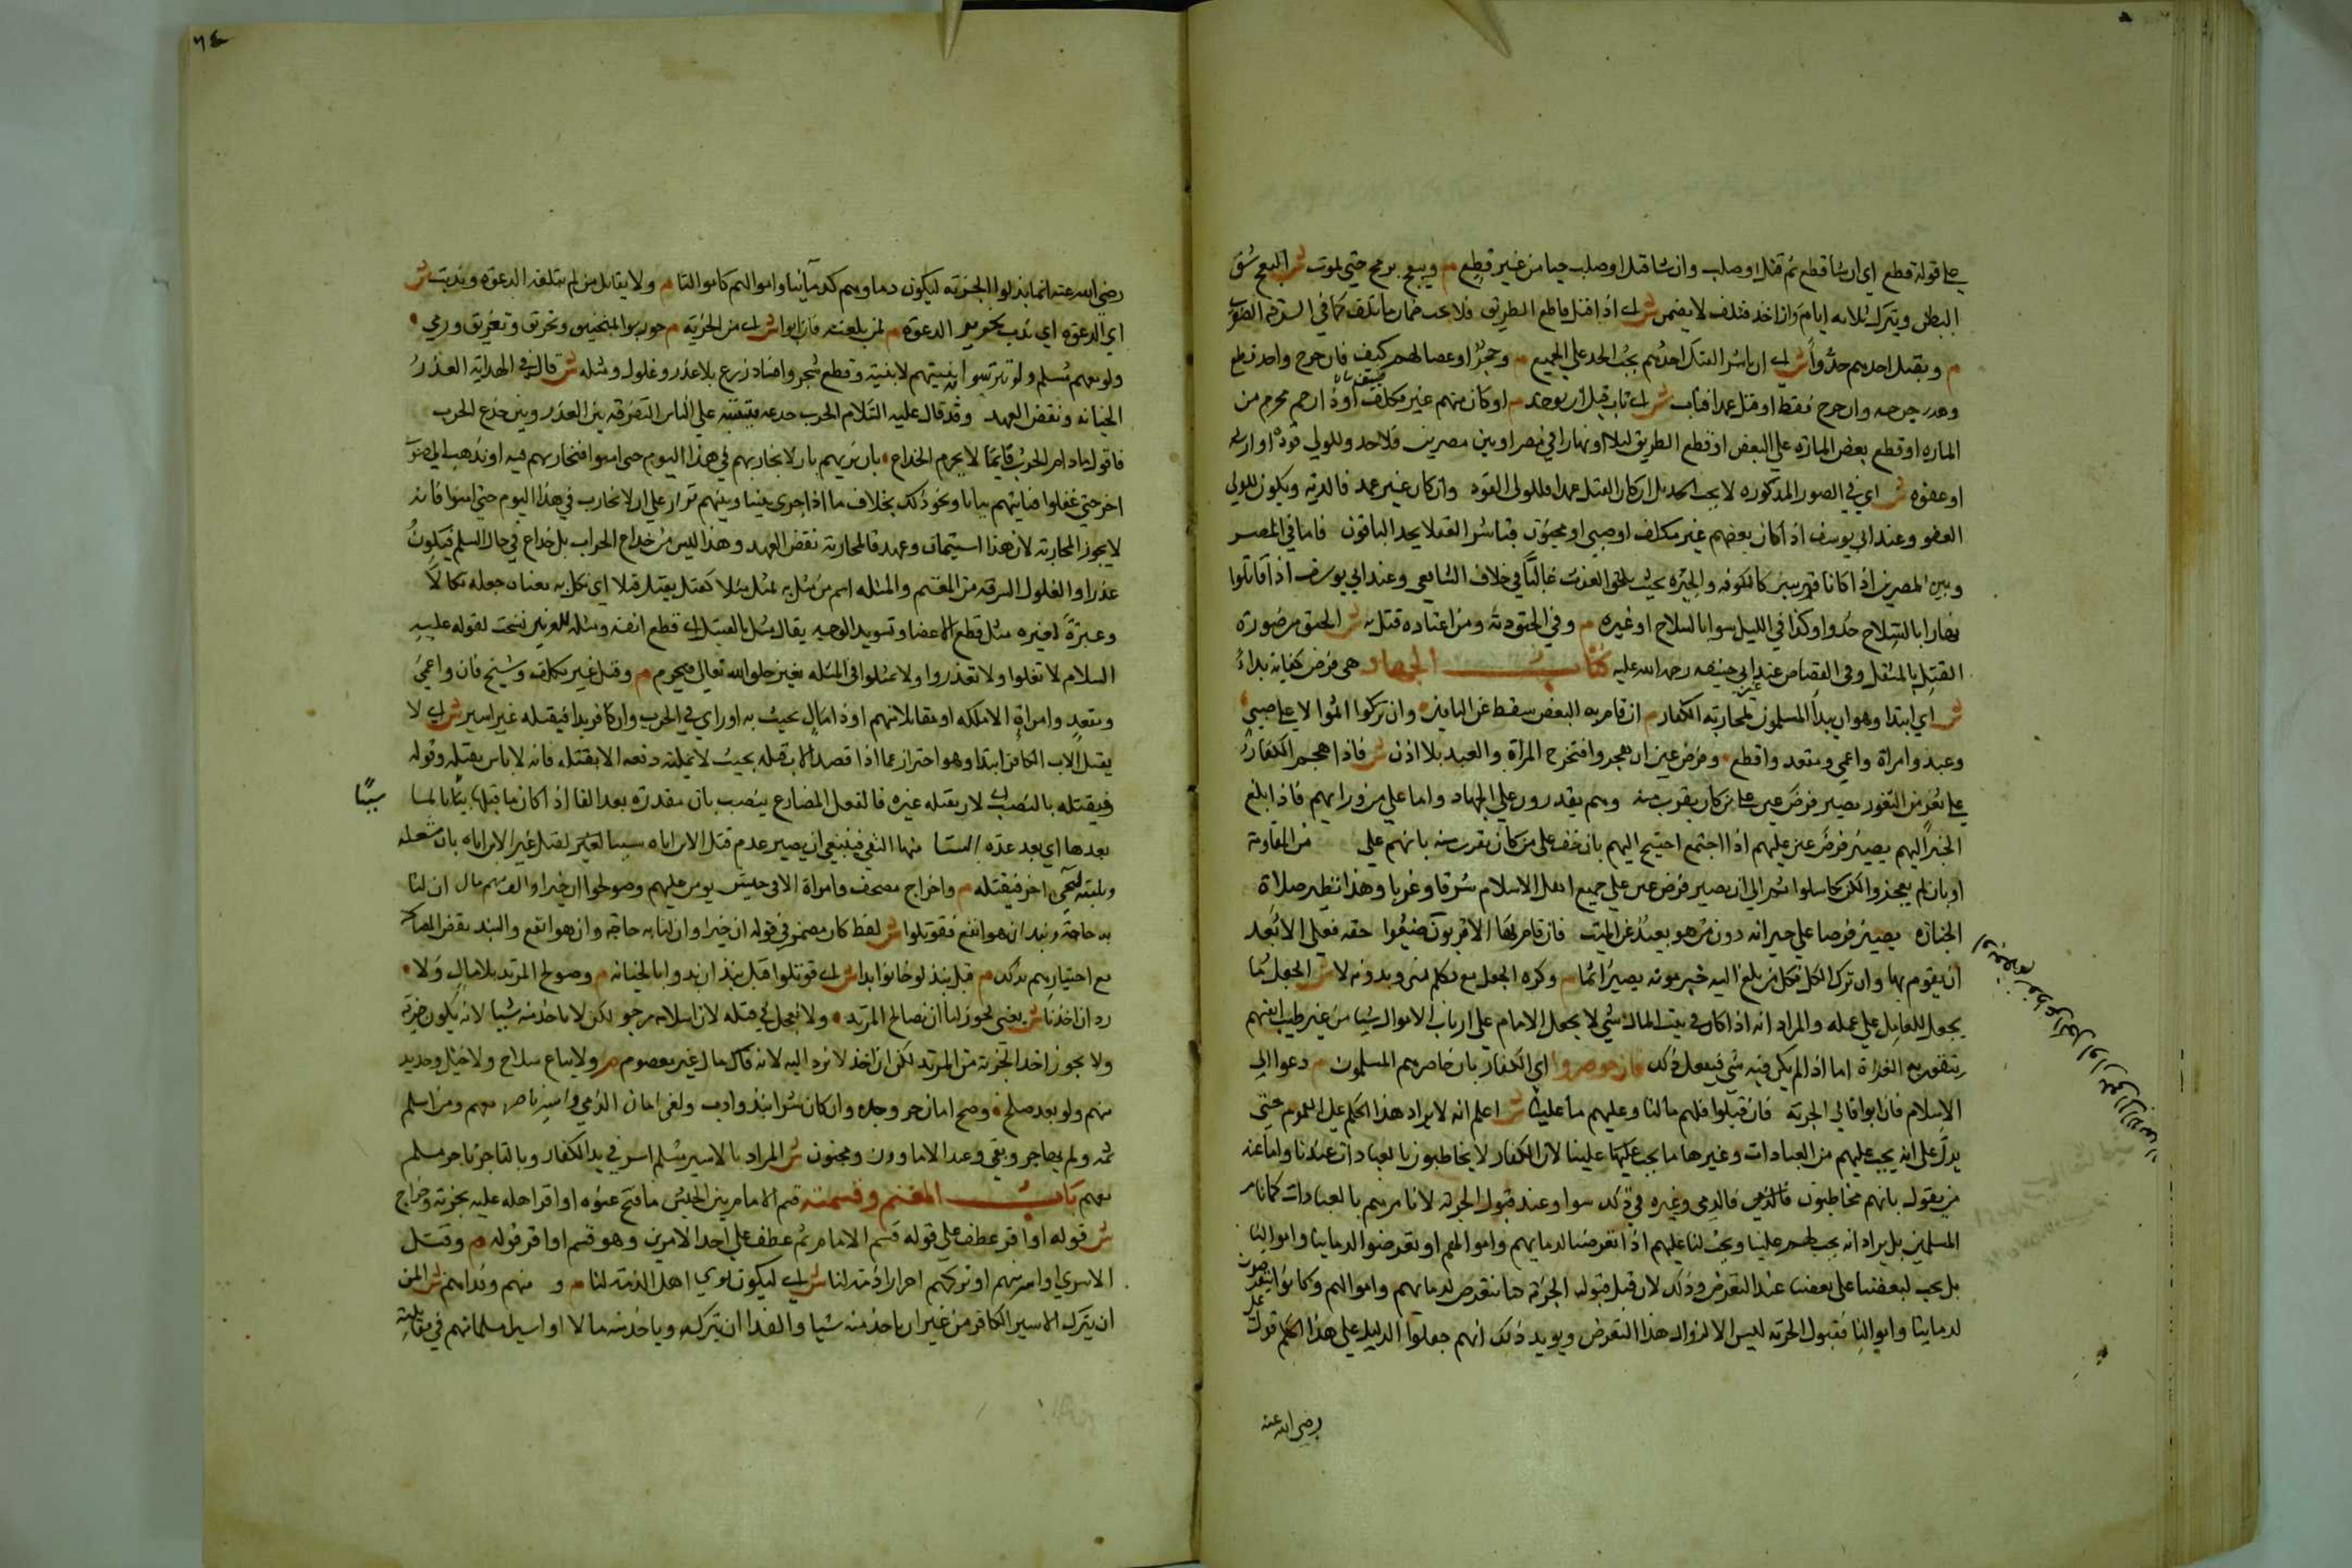 على قوله قطع اي ان شا قطع ثم قتل او صلب وان شا قتل او صلب حيا من غير قطع م ويبعج برمح حتى يموت ش البعج شق
البطن ويترك ثلاثه ايام وان اخذ فتلف لا يضمن ش اي اذا قتل قاطع الطريق فلا يجب ضمان ما تلف كما في السرقه الصغرى
م وبقتل احدهم حدوا ش اي ان باشر القتل احدهم يجب الحد على الجميع م وحجر او عصا لهم كيف فان جرح واحد قطع
وهدر جرحه وان جرح فقط او قتل عمدا فتاب ش اي تاب قبل ان يوخذ م او كان منهم غير مكلف او ذا رحم محرم من
الماره او قطع بعض الماره على البعض او قطع الطريق ليلا او نهارا في مصر او بين مصرين فلا حد وللولي قوده او ارشه
او عفوه ش اي في الصور المذكوره لا يجب الحد بل ان كان القتل عمدا فللولى القود وان كان غير عمد فالديه ويكون للولى
العفو وعند ابي يوسف اذا كان بعضهم غير مكلف او صبي او مجنون فباشر العقلا يحد الباقون فاما في المصر
وبين المصرين اذا كانا قريبين كالكوفه والحيره بحيث يلحق الغوث غالبا في خلاف الشافعي وعند ابي يوسف اذا قاتلوا
نهارا بالسلاح حدوا وكذا في الليل سوا بالسلاح او غيره م وفي الخنق ديه ومن اعتاده قتل به ش الخنق من صوره
القتل بالمثقل وفي القصاص عند ابي حنيفه رحمه الله عليه كتاب الجهاد هي فرض كفايه بداء
ش اي ابتدا وهو ان يبدا المسلمون لمحاربة الكفار م ان قام به البعض سقط عن الباقين وان تركوا اثموا لا على صبي
وعبد وامراة واعمي ومقعد واقطع وفرض عين ان هجموا فتخرج المراة والعبد بلا اذن ش فاذا هجم الكفار
على ثغر من الثغور يصير فرض عين على من كان يقرب منه وهم يقدرون على الجهاد واما على من ورايهم فاذا ابلغ
الخبر اليهم يصير فرض عين عليهم اذا احتيج اليهم بان خف على من كان بقرب منه بانهم على من المقاومة
او بان لم يعجزوا لكن تكاسلوا ثم الى ان يصير فرض عين على جميع اهل الاسلام شرقا وغربا وهذا نظير صلاة
الجنازه يصير فرضا على جيرانه دون من هو بعيد عن الميت فان قام بها الاقربون ضيعوا حقه فعلى الابعد
ان يقوم بها وان ترك الكل فكل من بلغ اليه خبر موته يصير اثما م وكره الجعل مع فى وبدونه لا ش الجعل ما
يجعل للعامل على عمله والمراد انه اذا كان في بيت المال شي لا يجعل الامام على ارباب الاموال شيا من غير طيب انفسهم
يتقوى به الغزاة اما اذا لم يكن فيه شي فيفعل ذلك فان حوصروا اي الكفار بان حاصرهم المسلمون م دعوا الى
الاسلام فان ابوا فالى الجزيه فان قبلوا فلهم ما لنا وعليهم ما علينا ش اعلم انه لا يراد هذا الحكم على العموم حتى
يدل على انه يجب عليهم من العبادات وغيرها ما يجب علينا لان الكفار لا يخاطبون بالعبادات عندنا واما عند
من يقول بانهم مخاطبون فالذمي وغيره في ذلك سوا وعند قبول الجزيه لا نامرهم بالعبادات كما نامر
المسلمين بل يراد انه يجب لهم علينا ويجب لنا عليهم اذا تعرضنا لدمايهم واموالهم او تعرضوا لدماينا واموالنا
بل يجب لبعضنا على بعضنا عند التعرض وذلك لان قبل قبول الجزيه كنا نتعرض لدمايهم واموالهم وكانوا يتعرضون
لدماينا واموالنا فقبول الجزيه ليس الا لزوال هذا التعرض ويويد ذلك انهم جعلوا الدليل على هذا الحكم قول على
رضى الله عنه
٦٤
رضى الله عنه انما بذلوا الجزيه ليكون دماوهم كدماينا واموالهم كاموالنا م ولا يقاتل من لم يبلغه الدعوه وندبت ش
اي الدعوه اي ندب تجديد الدعوه م لمن بلغته فان ابوا ش اي من الجزيه م حوربوا بمنجنيق وتحريق وتغريق ورمي
ولو معهم مسلم ولو تترسوا به بنيتهم لا بنيته وقطع شجر وافساد زرع بلا غدر وغلول ومثله ش قال في الهدايه الغدر
الخيانه ونقض العهد وقد قال عليه السلام الحرب خدعه فيشتبه على الناس التفرقه بين الغدر وبين خدع الحرب
فاقول ما دام الحرب قايما لا يحرم الخداع بان نريهم بان لا نحاربهم في هذا اليوم حتى امنوا فنحاربهم فيه او نذهب الى صوب
اخر حتى غفلوا فناتيهم بياتا ونحو ذلك بخلاف ما اذا جرى بيننا وبينهم قرار على ان لا نحارب في هذا اليوم حتى امنوا فانه
لا يجوز المحاربه لان هذا استيمان وعهد فالمحاربه نقض العهد وهذا ليس من خداع الحراب بل خداع في حال السلم فيكون
غدرا والغلول السرقه من المغنم والمثله اسم من مثل به يمثل مثلا كقتل يقتل قتلا اي نكل به معناه جعله نكالا
وعبرة لغيره مثل قطع الاعضا وتسويد الوجه يقال مثل بالقتيل اي قطع انفه ومثله العرنيين نسخت لقوله عليه
السلام لا تغلوا ولا تغدروا ولا تمثلوا والمثله بغير خلق الله تعالى محرم م وقتل غير مكلف وشيخ فان واعمي
ومقعد وامراة الا ملكه او مقاتلا منهم او ذا مال يحيث به او راي في الحرب وان كافرا بدا فيقتله غير ابنه ش اي لا
يقتل الاب الكافر ابتدا وهو احتراز عما اذا قصد الاب قتله بحيث لا يمكنه دفعه الا بقتله فانه لا باس بقتله وقوله
فيقتله بالنصب اي لان يقتله غيره فالفعل المضارع ينصب بان مقدره بعد الفا اذا كان ما قبلها سببا لما
سببا
بعدها اي بعد عده اشيا منها النفى فينبغى ان يصير عدم قتل الابن اباه سببا لقتل غير الابن اباه بان شغله
ويلبثه ليجي اخر فيقتله م واخراج مصحف وامراة الا في جيش يومن عليهم وصولحوا ان خيرا والقسم مال ان لنا
به حاجة ونبذ ان هو انفع فقوتلوا ش لفظ كان مضمر في قوله ان خيرا وان لنا به حاجة وان هو انفع والنبذ نقض العهد
مع اخبارهم بذلك م قبل نبذ لو خانوا بدا ش اي قوتلوا قبل نبذ ان بدوا بالخيانه م وصولح المرتد بلا مال ولا
رد ان اخذنا ش يعنى يجوز لنا ان نصالح المرتد ولا نعجل في قتله لان اسلامه مرجو لكن لا ناخذ منه شيا لانه يكون جزية
ولا يجوز اخذ الجزيه من المرتد لكن ان اخذ لا نرد اليه لانه مال غير معصوم م ولا يباع سلاح ولا خيل وحديد
منهم ولو بعد صلح وصح امان حر وحره وان كان شرا نبذ وادب ولغى امان الذمي واسير تاجر معهم ومن اسلم
ثمه ولم يهاجر وصبي وعبد الا ماذون ومجنون ش المراد بالاسير مسلم اسر في يد الكفار وبالتاجر تاجر مسلم
معهم باب المغنم وقسمته قسم الامام بين الجيش ما فتح عنوه او اقر اهله عليه بجزيه وخراج
ش قوله او اقر عطف على قوله قسم الامام ثم عطف على احد الامرين وهو قسم او اقر قوله م وقتل
الاسري او استرقهم او تركهم احرارا ذمة لنا ش اي ليكونوا اهل الذمه لنا م و منهم وفداهم ش المن
ان يترك الاسير الكافر من غير ان ياخذ منه شيا والفدا ان يترك وياخذ منه مالا او اسيرا مسلما منهم في مقابلته